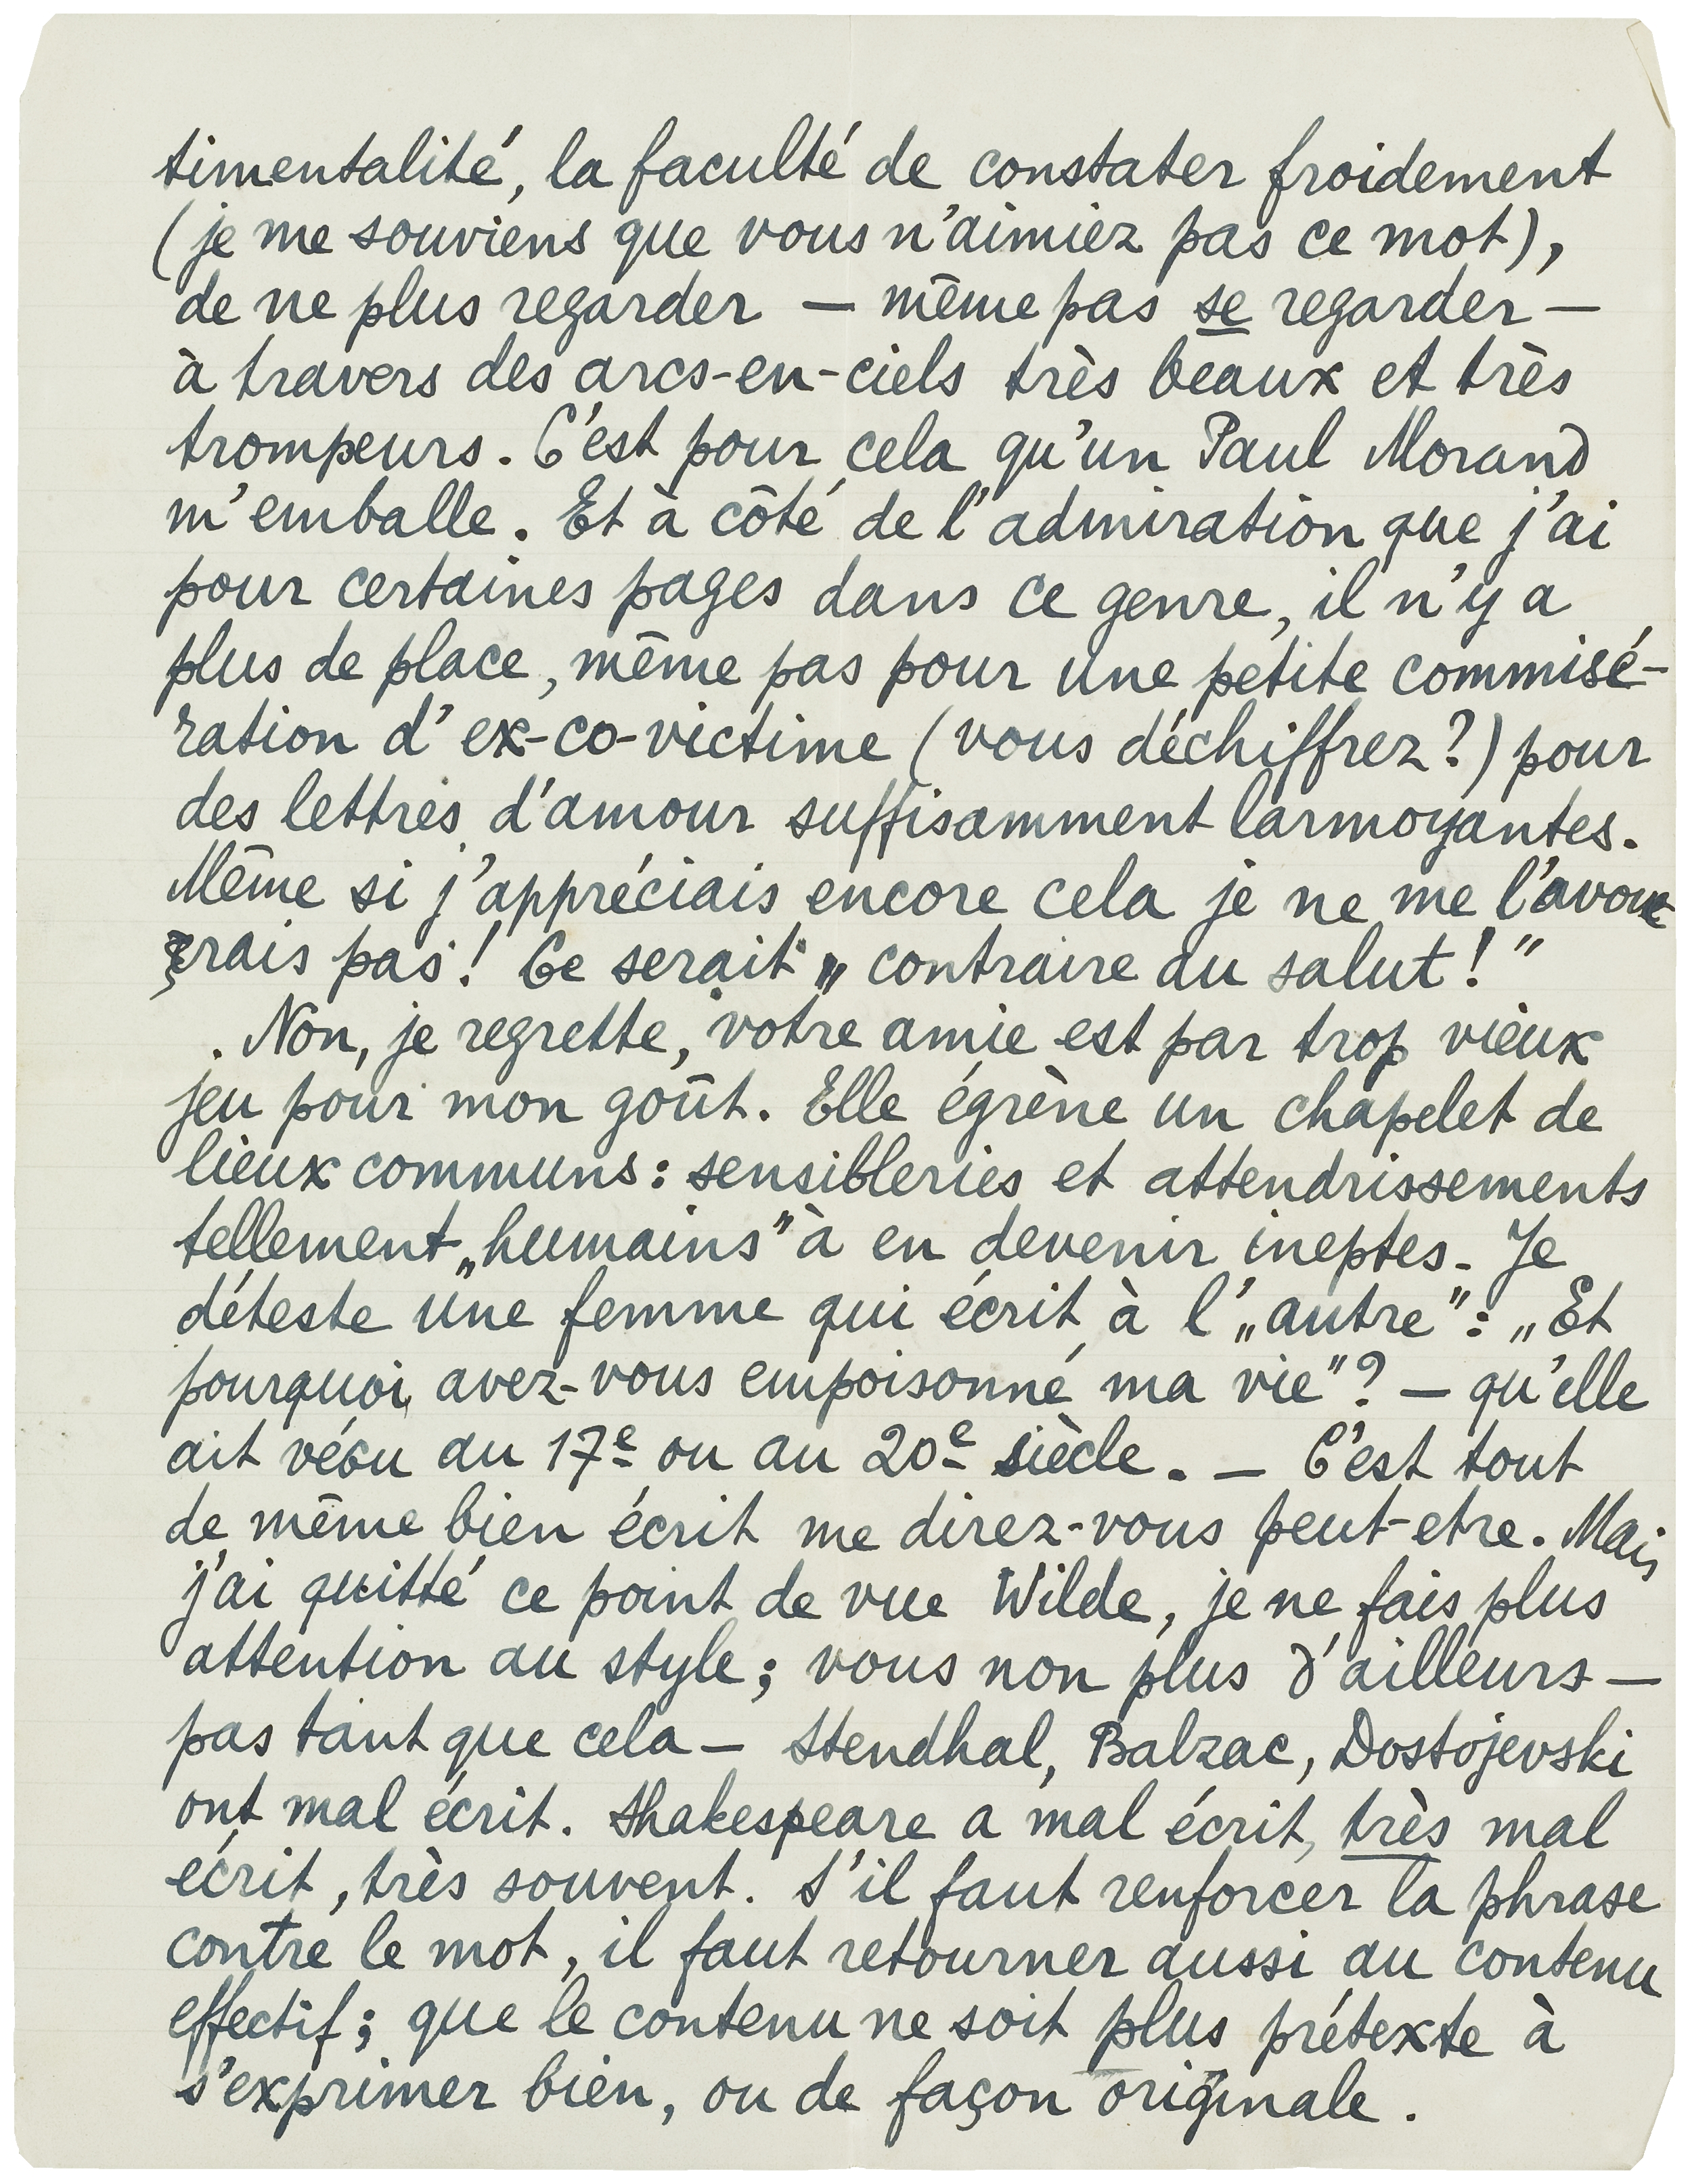 timentalité, la faculté de constater froidement
(je me souviens que vous n'aimiez pas ce mot),
de ne plus regarder — même pas se regarder —
à travers des arcs-en-ciels très beaux et très
trompeurs. C'est pour cela qu'un Paul Morand
m'emballe. Et à côté de l'admiration que j'ai
pour certaines pages dans ce genre, il n'y a
plus de place, même pas pour une petite commisé-
ration d'ex-co-victime (vous déchiffrez?) pour
des lettres d'amour suffisamment larmoyantes.
Même si j'appréciais encore cela je ne me l'avoue-
rais pas! Ce serait „contraire au salut!”
. Non, je regrette, votre amie est par trop vieux
jeu pour mon goût. Elle égrène un chapelet de
lieux communs: sensibleries et attendrissements
tellement „humains” à en devenir ineptes. Je
déteste une femme qui écrit à l'„autre”: „Et
pourquoi avez-vous empoisonné ma vie”? — qu'elle
ait vécu au 17e ou au 20e siècle. — C'est tout
de même bien écrit me direz-vous peut-etre. Mais
j'ai quitté ce point de vue Wilde, je ne fais plus
attention au style; vous non plus d'ailleurs —
pas tant que cela — Stendhal, Balzac, Dostojevski
ont mal écrit. Shakespeare a mal écrit, très mal
écrit, très souvent. S'il faut renforcer la phrase
contre le mot, il faut retourner aussi au contenu
effectif; que le contenu ne soit plus prétexte à
s'exprimer bien, ou de façon originale.